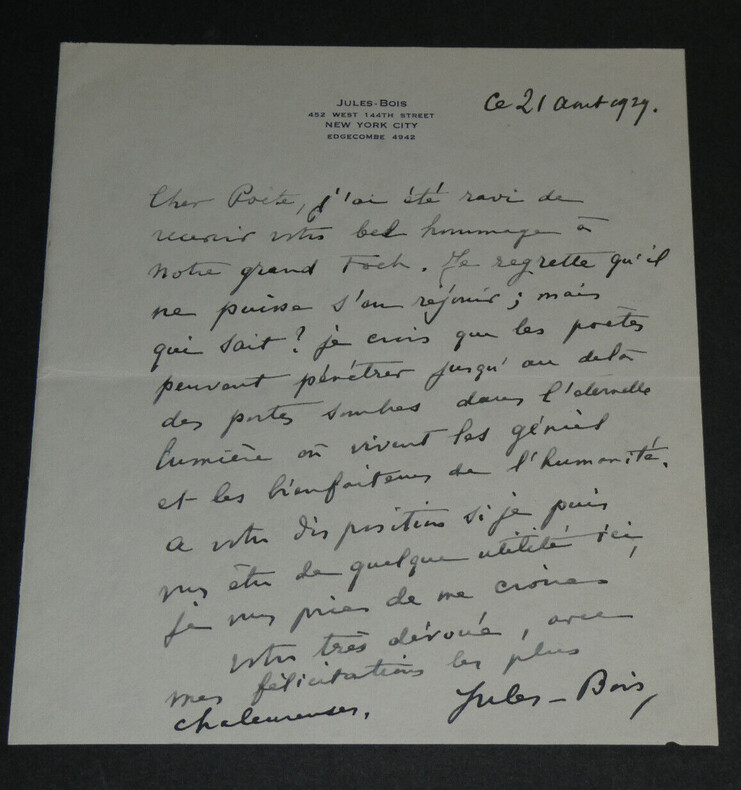 JULES-BOIS
452 WEST 144TH STREET
NEW YORK CITY
EDGECOMBE 4942
Ce 21 août 1929.
Cher Poète, j'ai été ravi de
recevoir votre bel hommage à
notre grand Foch. Je regrette qu'il
ne puisse s'en réjouir ; mais
qui sait ? je crois que les poètes
peuvent pénétrer jusqu'au delà
des portes sombres dans l'éternelle
lumière où vivent les génies
et les bienfaiteurs de l'humanité.
A votre disposition si je puis
vous être de quelque utilité ici,
je vous prie de me croire
votre très dévoué, avec
mes félicitations les plus
chaleureuses.
Jules-Bois